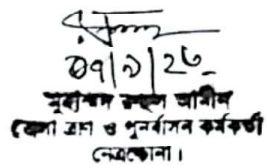 ০৭/৯/২৩
মুহাম্মদ রুহুল আমীন
জেলা ত্রাণ ও পুনর্বাসন কর্মকর্তা
নেত্রকোনা।